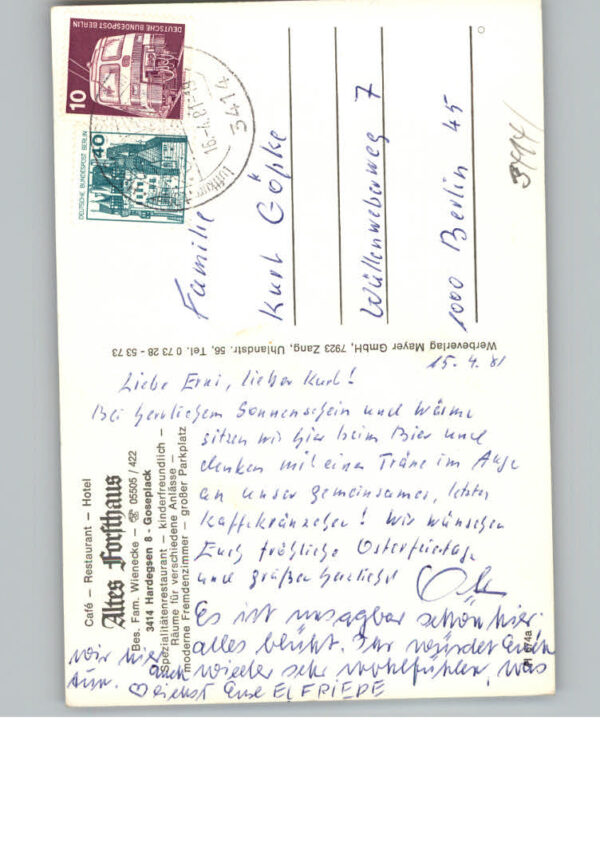 DEUTSCHE BUNDESPOST BERLIN
10
DEUTSCHE BUNDESPOST BERLIN
40
16.-4.81
3414
Luftkur
3414/
Familie
Kurt Göpke
Wüllenweberweg 7
1000 Berlin 45
Werbeverlag Mayer GmbH, 7923 Zang, Uhlandstr. 56, Tel. 0 73 28 - 53 73
15. 4. 81
Liebe Erni, lieber Kurt!
Bei herrlichem Sonnenschein und Wärme
sitzen wir hier beim Bier und
denken mit einer Träne im Auge
an unser gemeinsames, letztes
Kaffekränzchen! Wir wünschen
Euch fröhliche Osterfeiertage
und grüßen herzlichst
Es ist unsagbar schön hier.
alles blüht. Ihr würdet Euch
auch wieder sehr wohlfühlen, was
wir hier
tun.
♡lichst Eure ELFRIEDE
Café – Restaurant – Hotel
Altes Forsthaus
Bes. Fam. Wienecke – ☎ 05505 / 422
3414 Hardegsen 8 - Goseplack
Spezialitätenrestaurant – kinderfreundlich –
Räume für verschiedene Anlässe –
moderne Fremdenzimmer – großer Parkplatz